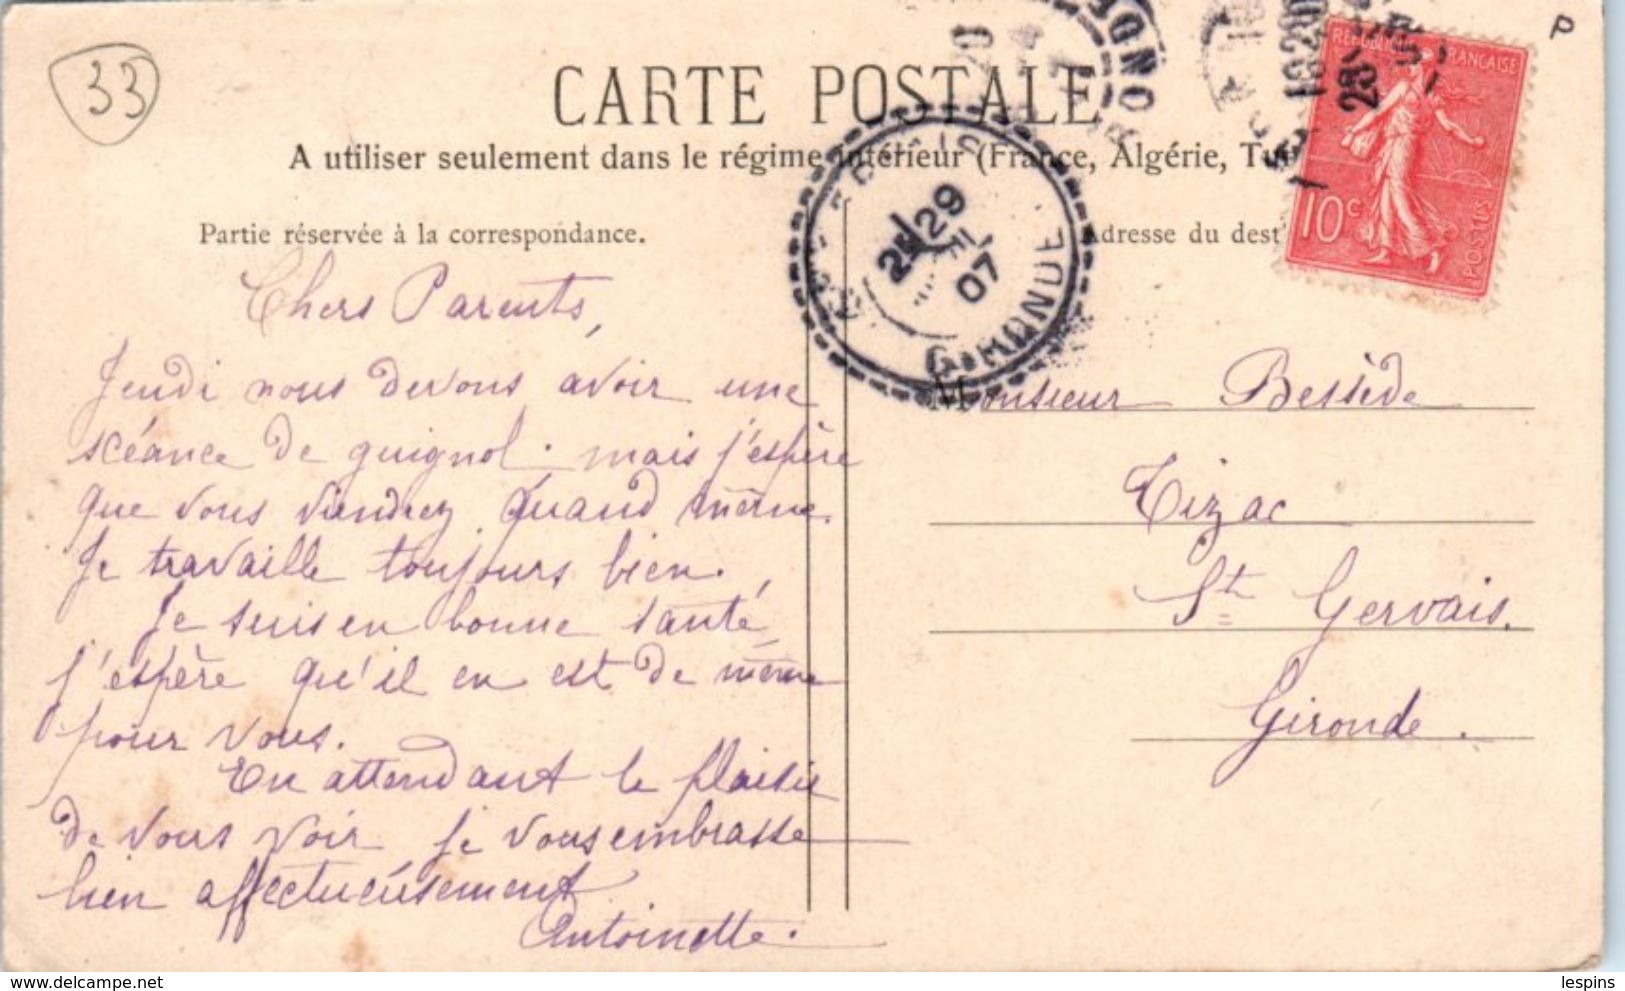 33
P
CARTE POSTALE
A utiliser seulement dans le régime intérieur (France, Algérie, Tu
Partie réservée à la correspondance.
Adresse du dest
RÉPUBLIQUE FRANÇAISE
10c
POSTES
29
07
GIRONDE
Chers Parents,
Jeudi nous devons avoir une
scéance de guignol. mais j'espère
que vous viendrez quand même.
Je travaille toujours bien.
Je suis en bonne santé,
j'espère qu'il en est de même
pour vous.
En attendant le plaisir
de vous voir je vous embrasse
bien affectueusement
Antoinette.
Monsieur Bessède
Tizac
St Gervais.
Gironde.
www.delcampe.net
lespins